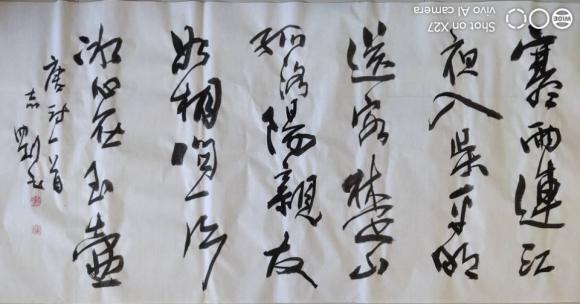 寒雨連江
夜入吳平明
送客楚山
孤洛陽親友
如相問一片
冰心在玉壺
唐詩一首
Shot on X27
vivo AI camera
WIDE